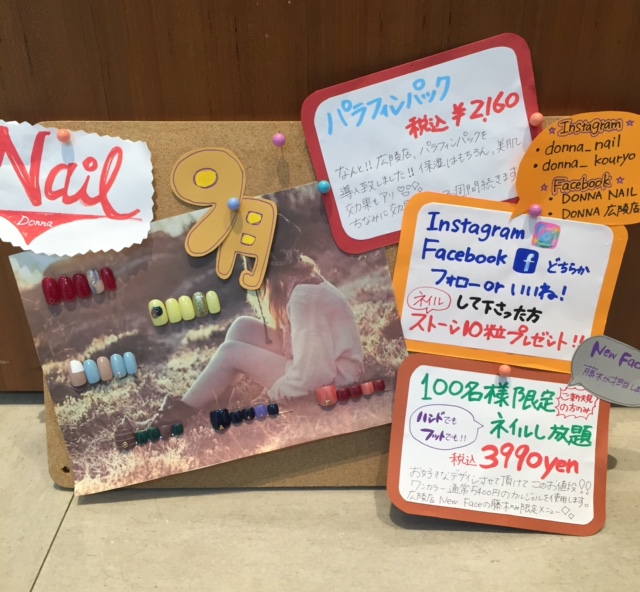 Nail
Donna
9月
パラフィンパック
税込 ¥2,160
なんと!! 広陵店、パラフィンパックを
導入致しました!! 保湿はもちろん、美肌
効果もアリ♡♡
ちなみに効 週間続きます
☆Instagram☆
・donna_nail
・donna_kouryo
☆Facebook☆
・DONNA NAIL
・DONNA 広陵店
Instagram
Facebook f どちらか
フォロー or いいね!
して下さった方
ネイル
ストーン10粒プレゼント!!
New Fac
藤木が担当しま
100名様限定
ご新規の方のみ
ハンドでも
フットでも!!
ネイルし放題
税込 3990yen
お好きなデザインさせて頂けて このお値段♡♡
ワンカラー通常5400円のカルジェルを使用します。
広陵店 New Faceの藤木のみ限定メニュー◇